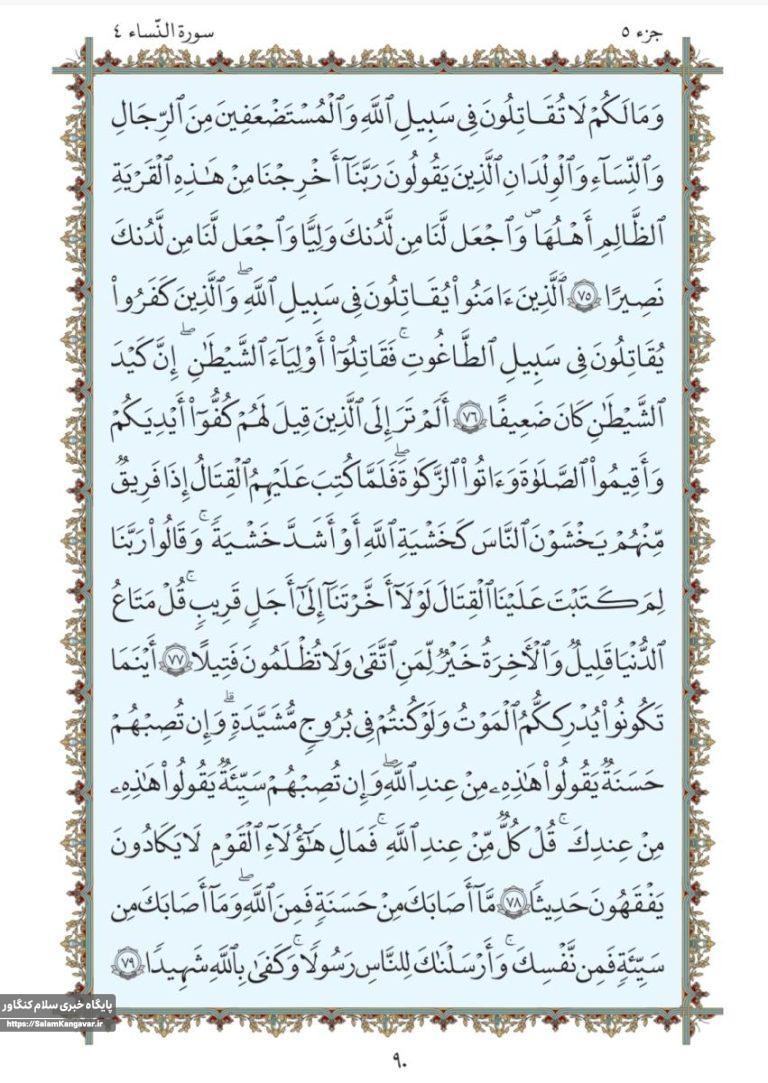 جزء ٥
سورة النّساء ٤
وَمَا لَكُمْ لَا تُقَـٰتِلُونَ فِى سَبِيلِ ٱللَّهِ وَٱلْمُسْتَضْعَفِينَ مِنَ ٱلرِّجَالِ
وَٱلنِّسَآءِ وَٱلْوِلْدَٰنِ ٱلَّذِينَ يَقُولُونَ رَبَّنَآ أَخْرِجْنَا مِنْ هَـٰذِهِ ٱلْقَرْيَةِ
ٱلظَّالِمِ أَهْلُهَا ۖ وَٱجْعَل لَّنَا مِن لَّدُنكَ وَلِيًّا وَٱجْعَل لَّنَا مِن لَّدُنكَ
نَصِيرًا ٧٥ ٱلَّذِينَ ءَامَنُوا۟ يُقَـٰتِلُونَ فِى سَبِيلِ ٱللَّهِ ۖ وَٱلَّذِينَ كَفَرُوا۟
يُقَـٰتِلُونَ فِى سَبِيلِ ٱلطَّـٰغُوتِ ۚ فَقَـٰتِلُوٓا۟ أَوْلِيَآءَ ٱلشَّيْطَـٰنِ ۖ إِنَّ كَيْدَ
ٱلشَّيْطَـٰنِ كَانَ ضَعِيفًا ٧٦ أَلَمْ تَرَ إِلَى ٱلَّذِينَ قِيلَ لَهُمْ كُفُّوٓا۟ أَيْدِيَكُمْ
وَأَقِيمُوا۟ ٱلصَّلَوٰةَ وَءَاتُوا۟ ٱلزَّكَوٰةَ ۖ فَلَمَّا كُتِبَ عَلَيْهِمُ ٱلْقِتَالُ إِذَا فَرِيقٌ
مِّنْهُمْ يَخْشَوْنَ ٱلنَّاسَ كَخَشْيَةِ ٱللَّهِ أَوْ أَشَدَّ خَشْيَةً ۚ وَقَالُوا۟ رَبَّنَا
لِمَ كَتَبْتَ عَلَيْنَا ٱلْقِتَالَ لَوْلَآ أَخَّرْتَنَآ إِلَىٰٓ أَجَلٍ قَرِيبٍ ۗ قُلْ مَتَـٰعُ
ٱلدُّنْيَا قَلِيلٌ وَٱلْـَٔاخِرَةُ خَيْرٌ لِّمَنِ ٱتَّقَىٰ وَلَا تُظْلَمُونَ فَتِيلًا ٧٧ أَيْنَمَا
تَكُونُوا۟ يُدْرِككُّمُ ٱلْمَوْتُ وَلَوْ كُنتُمْ فِى بُرُوجٍ مُّشَيَّدَةٍ ۗ وَإِن تُصِبْهُمْ
حَسَنَةٌ يَقُولُوا۟ هَـٰذِهِۦ مِنْ عِندِ ٱللَّهِ ۖ وَإِن تُصِبْهُمْ سَيِّئَةٌ يَقُولُوا۟ هَـٰذِهِۦ
مِنْ عِندِكَ ۚ قُلْ كُلٌّ مِّنْ عِندِ ٱللَّهِ ۖ فَمَالِ هَـٰٓؤُلَآءِ ٱلْقَوْمِ لَا يَكَادُونَ
يَفْقَهُونَ حَدِيثًا ٧٨ مَّآ أَصَابَكَ مِنْ حَسَنَةٍ فَمِنَ ٱللَّهِ ۖ وَمَآ أَصَابَكَ مِن
سَيِّئَةٍ فَمِن نَّفْسِكَ ۚ وَأَرْسَلْنَـٰكَ لِلنَّاسِ رَسُولًا ۚ وَكَفَىٰ بِٱللَّهِ شَهِيدًا ٧٩
پایگاه خبری سلام کنگاور
https://SalamKangavar.ir
٩٠